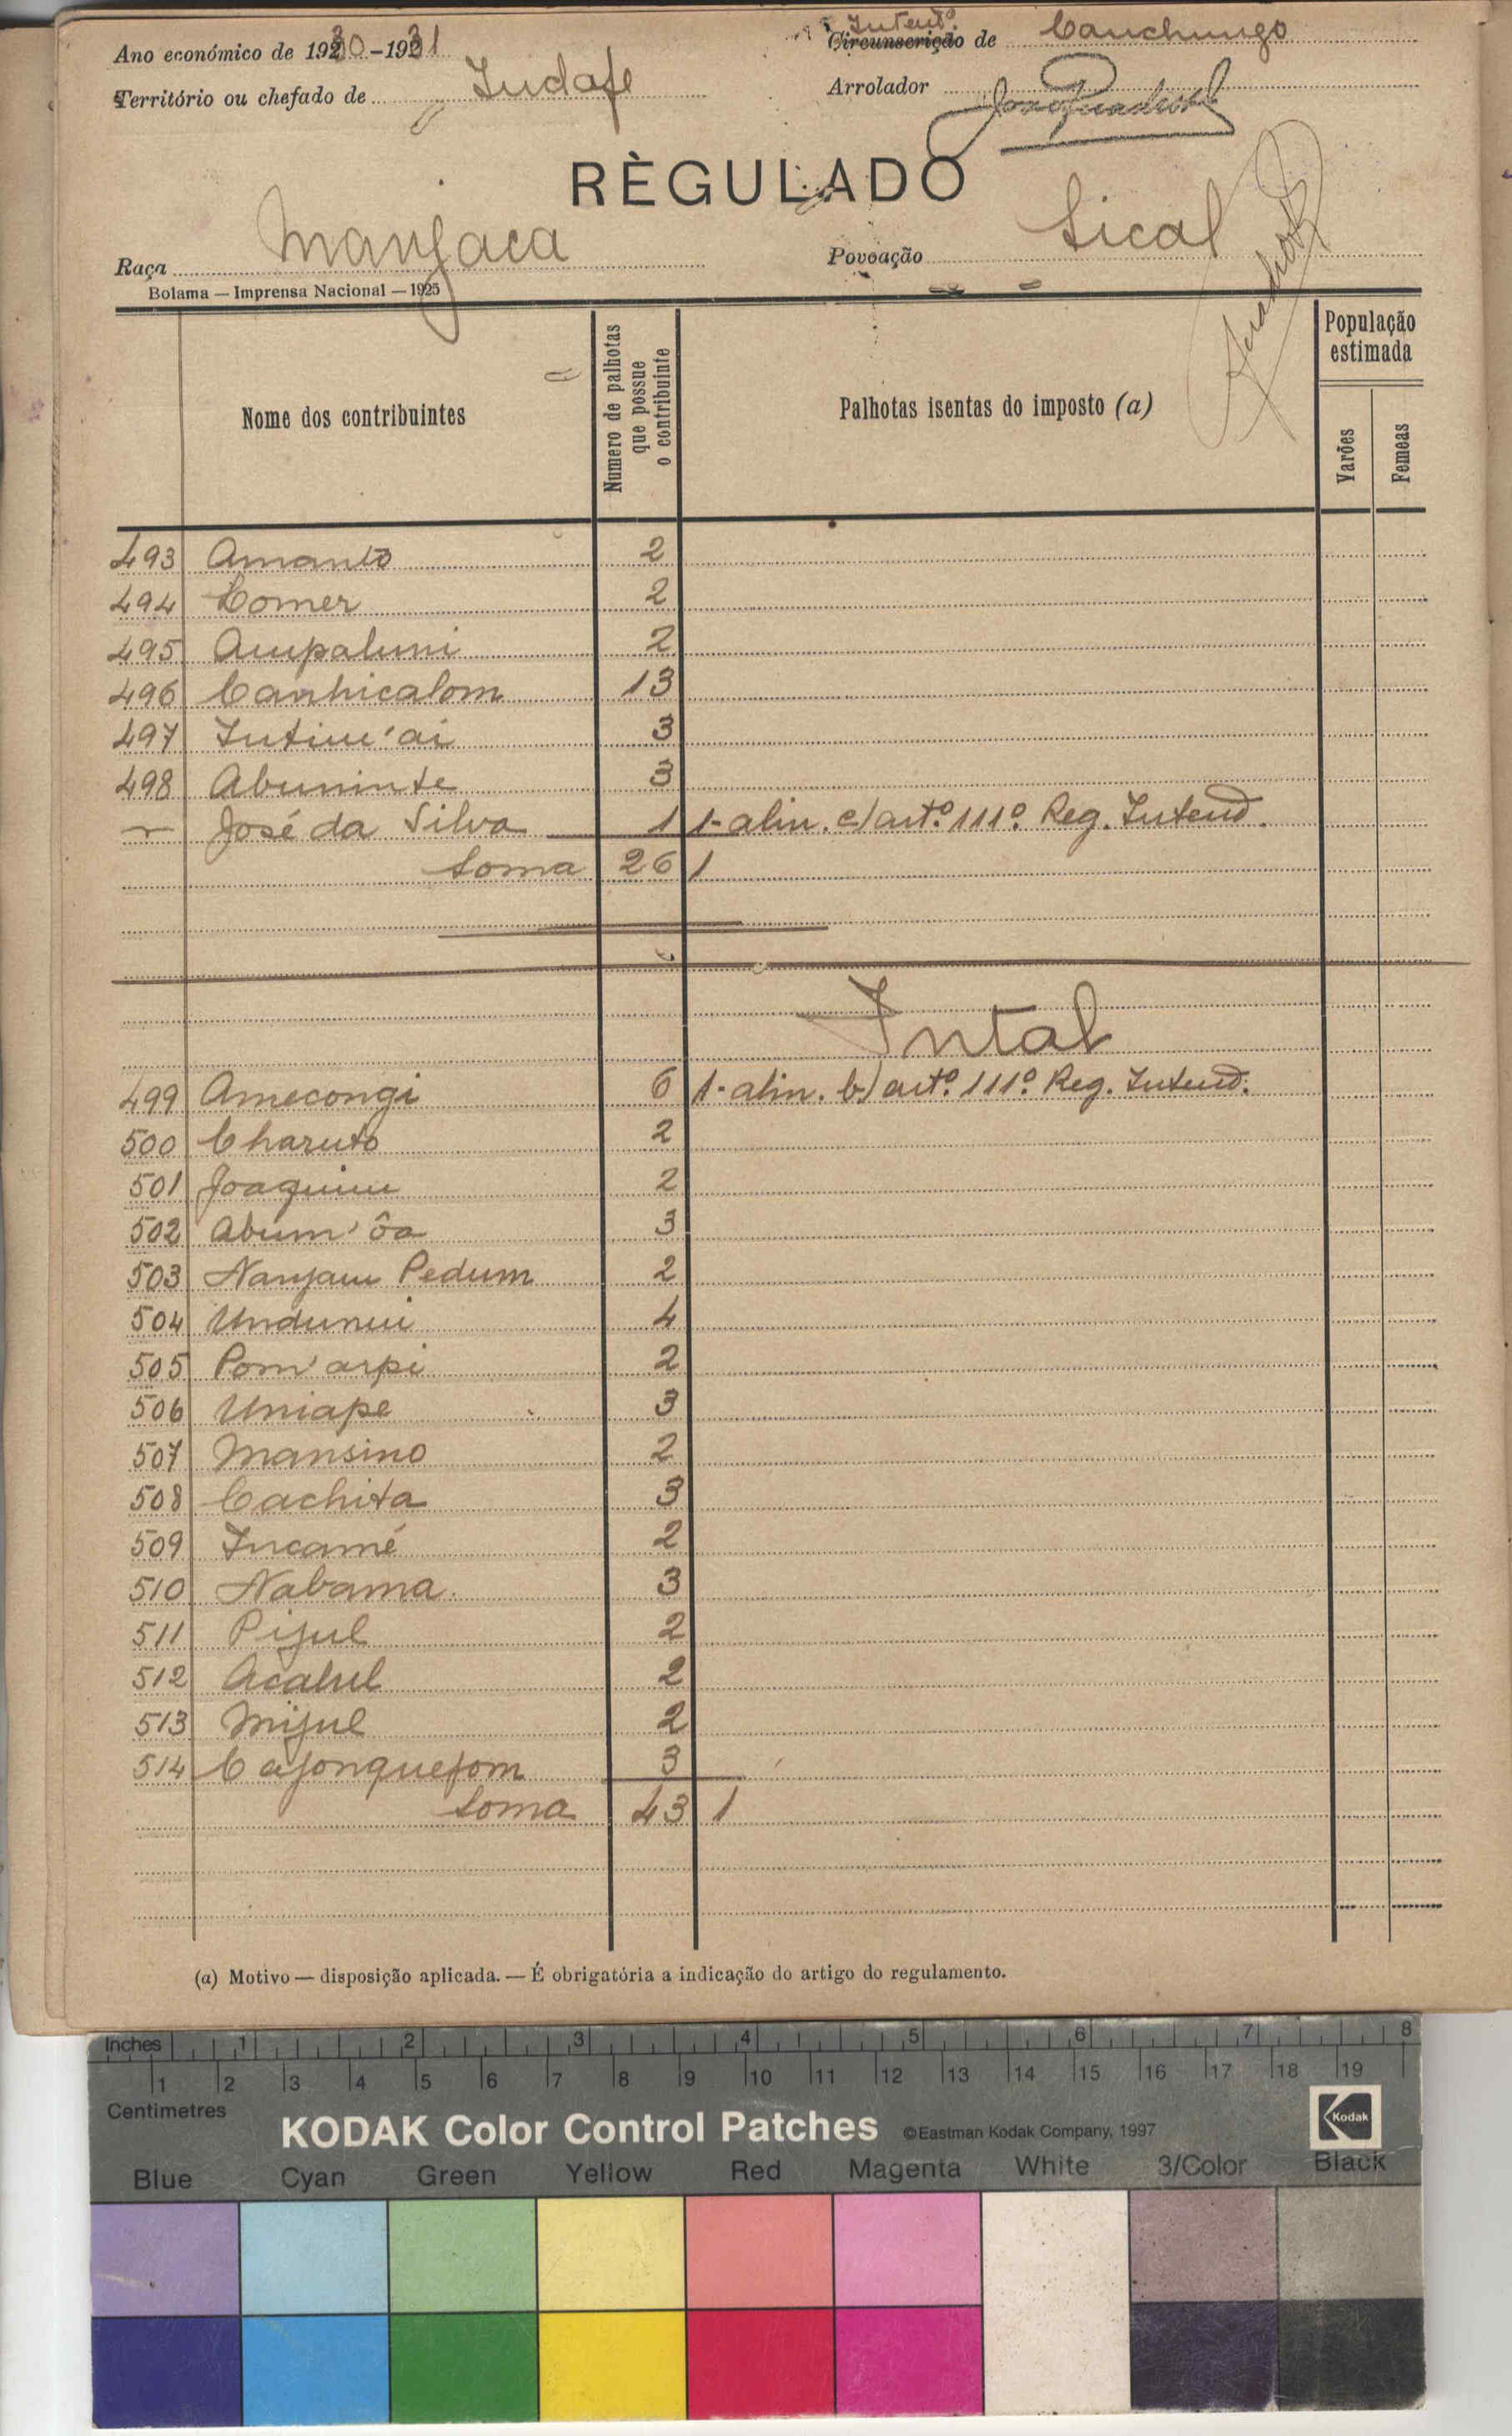 Ano económico de 1930-1931
Intend.ª Circunscrição de Canchungo
Território ou chefado de Indafe
Arrolador
RÈGULADO
Raça Manjaca
Povoação Sical
Bolama — Imprensa Nacional — 1925
Nome dos contribuintes
Numero de palhotas que possue o contribuinte
Palhotas isentas do imposto (a)
População estimada
Varões
Femeas
493 Amanto 2
494 Comer 2
495 Aupaluni 2
496 Canhicalom 13
497 Intim'ai 3
498 Abuninte 3
José da Silva 1 1-alin. c) art.º 111º. Reg. Intend.
Soma 26 1
Intal
499 Amecongi 6 1-alin. b) art.º 111º Reg. Intend.
500 Charuto 2
501 Joaquim 2
502 Abum'ôa 3
503 Nanjam Pedum 2
504 Undunui 4
505 Pom'arpi 2
506 Uniape 3
507 Mansino 2
508 Cachita 3
509 Incamé 2
510 Nabama 3
511 Pijul 2
512 Acalul 2
513 Mijul 2
514 Cajonquejom 3
Soma 43 1
(a) Motivo — disposição aplicada. — É obrigatória a indicação do artigo do regulamento.
Inches 1 2 3 4 5 6 7 8
1 2 3 4 5 6 7 8 9 10 11 12 13 14 15 16 17 18 19
Centimetres
KODAK Color Control Patches ©Eastman Kodak Company, 1997 Kodak
Blue Cyan Green Yellow Red Magenta White 3/Color Black